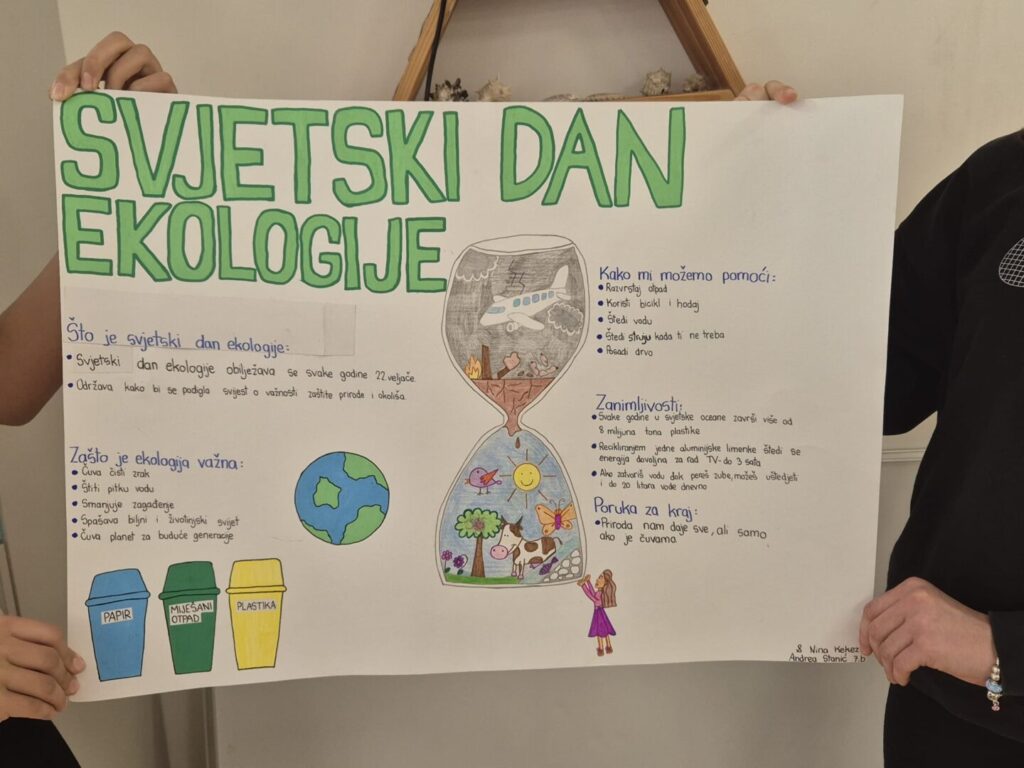 SVJETSKI DAN
EKOLOGIJE
Što je svjetski dan ekologije:
• Svjetski dan ekologije obilježava se svake godine 22. veljače.
• Održava kako bi se podigla svijest o važnosti zaštite prirode i okoliša.
Zašto je ekologija važna:
• Čuva čisti zrak
• Štiti pitku vodu
• Smanjuje zagađenje
• Spašava biljni i životinjski svijet
• Čuva planet za buduće generacije
PAPIR
MIJEŠANI
OTPAD
PLASTIKA
Kako mi možemo pomoći:
• Razvrstaj otpad
• Koristi bicikl i hodaj
• Štedi vodu
• Štedi struju kada ti ne treba
• Posadi drvo
Zanimljivosti:
• Svake godine u svjetske oceane završi više od
8 milijuna tona plastike
• Recikliranjem jedne aluminijske limenke štedi se
energija dovoljna za rad TV-do 3 sata
• Ako zatvoriš vodu dok pereš zube, možeš uštedjeti
i do 20 litara vode dnevno
Poruka za kraj:
• Priroda nam daje sve, ali samo
ako je čuvamo
Nina Kekez
Andrea Stanić 7.b